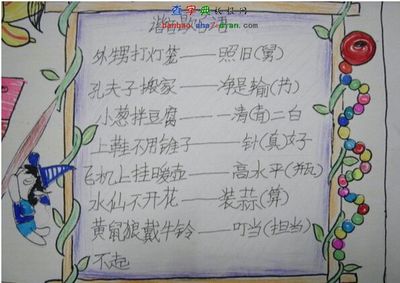 查字典
谐音歇后语
外甥打灯笼——照旧(舅)
孔夫子搬家——净是输(书)
小葱拌豆腐——一清(青)二白
上鞋不用锥子——针(真)好
飞机上挂暖壶——高水平(瓶)
水仙不开花——装蒜(算)
黄鼠狼戴牛铃——叮当(担当)
不起